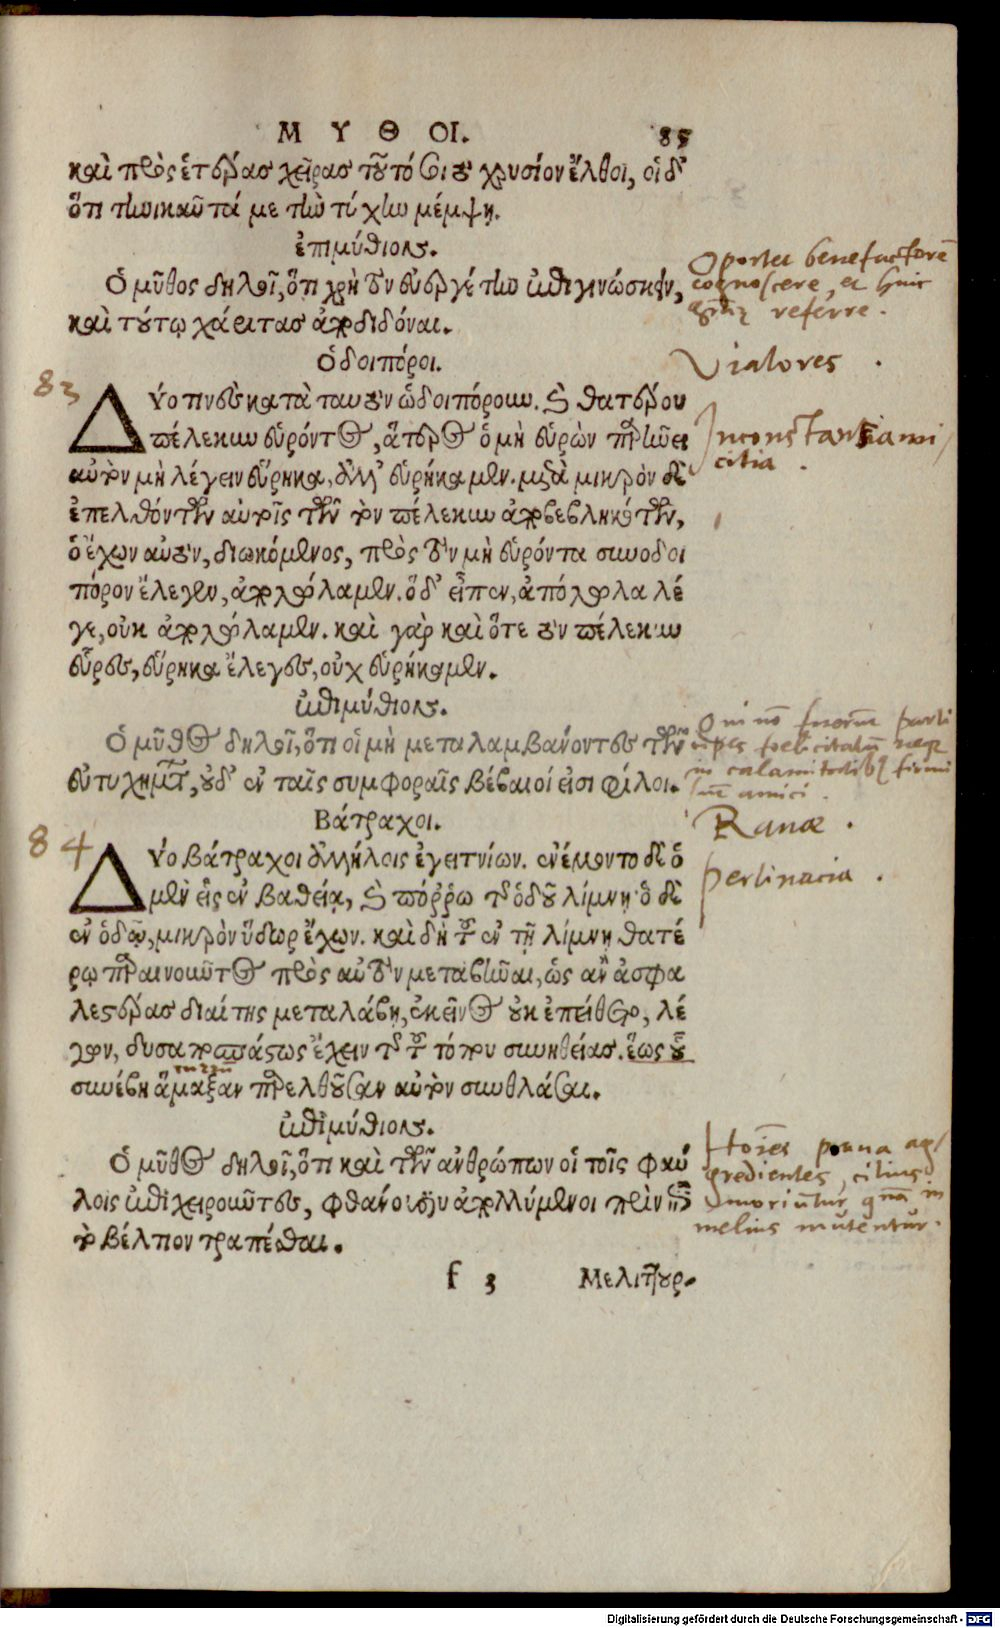 ΜΥΘΟΙ. 85
καὶ πρὸς ἑτέρας χεῖρας τοῦτό σοι τὸ χρυσίον ἔλθοι, οἶδ'
ὅτι τηνικαῦτά με τὴν τύχην μέμψῃ.
ἐπιμύθιον.
Ὁ μῦθος δηλοῖ, ὅτι χρὴ τὸν εὐεργέτην ἐπιγινώσκειν,
καὶ τούτῳ χάριτας ἀποδιδόναι.
Ὁδοιπόροι.
83
Δύο τινὲς κατὰ ταυτὸν ὡδοιπόρουν. καὶ θατέρου
πέλεκυν εὑρόντος, ἅτερος ὁ μὴ εὑρὼν παρῄνει
αὐτὸν μὴ λέγειν εὕρηκα, ἀλλ' εὑρήκαμεν. μετὰ μικρὸν δὲ
ἐπελθόντων αὐτοῖς τῶν τὸν πέλεκυν ἀποβεβληκότων,
ὁ ἔχων αὐτὸν, διωκόμενος, πρὸς τὸν μὴ εὑρόντα συνοδοι
πόρον ἔλεγεν, ἀπολώλαμεν. ὁ δ' εἶπεν, ἀπόλωλα λέ
γε, οὐκ ἀπολώλαμεν. καὶ γὰρ καὶ ὅτε τὸν πέλεκυν
εὗρες, εὕρηκα ἔλεγες, οὐχ εὑρήκαμεν.
ἐπιμύθιον.
Ὁ μῦθος δηλοῖ, ὅτι οἱ μὴ μεταλαμβάνοντες τῶν
εὐτυχημάτων, οὐδ' ἐν ταῖς συμφοραῖς βέβαιοί εἰσι φίλοι.
Βάτραχοι.
84
Δύο βάτραχοι ἀλλήλοις ἐγειτνίων. ἐνέμοντο δὲ ὁ
μὲν εἷς ἐν βαθείᾳ, καὶ πόῤῥω τῆς ὁδοῦ λίμνῃ· ὁ δὲ
ἐν ὁδῷ, μικρὸν ὕδωρ ἔχων. καὶ δὴ τοῦ ἐν τῇ λίμνῃ θατέ
ρῳ παραινοῦντος πρὸς αὐτὸν μεταβῆναι, ὡς ἂν ἀσφα
λεστέρας διαίτης μεταλάβῃ, ἐκεῖνος οὐκ ἐπείθετο, λέ
γων, δυσαποσπάστως ἔχειν τῆς τοῦ τόπου συνηθείας. ἕως οὗ
συνέβη ἅμαξαν παρελθοῦσαν αὐτὸν συνθλάσαι.
ἐπιμύθιον.
Ὁ μῦθος δηλοῖ, ὅτι καὶ τῶν ἀνθρώπων οἱ τοῖς φαύ
λοις ἐπιχειροῦντες, φθάνουσιν ἀπολλύμενοι πρὶν ἐπὶ
τὸ βέλτιον τραπέσθαι.
f 3 Μελιττουρ.
Oportet benefactorē
cognoscere, et huic
referre.
Viatores.
Inconstans ami/
citia.
Qui nō fuerūt parti
cipes foelicitatū neqz
in calamitatibz firmi
sūt amici.
Ranae.
pertinacia.
prava ag/
gredientes, citius
moriūtur in
melius mutentur.
Digitalisierung gefördert durch die Deutsche Forschungsgemeinschaft - DFG